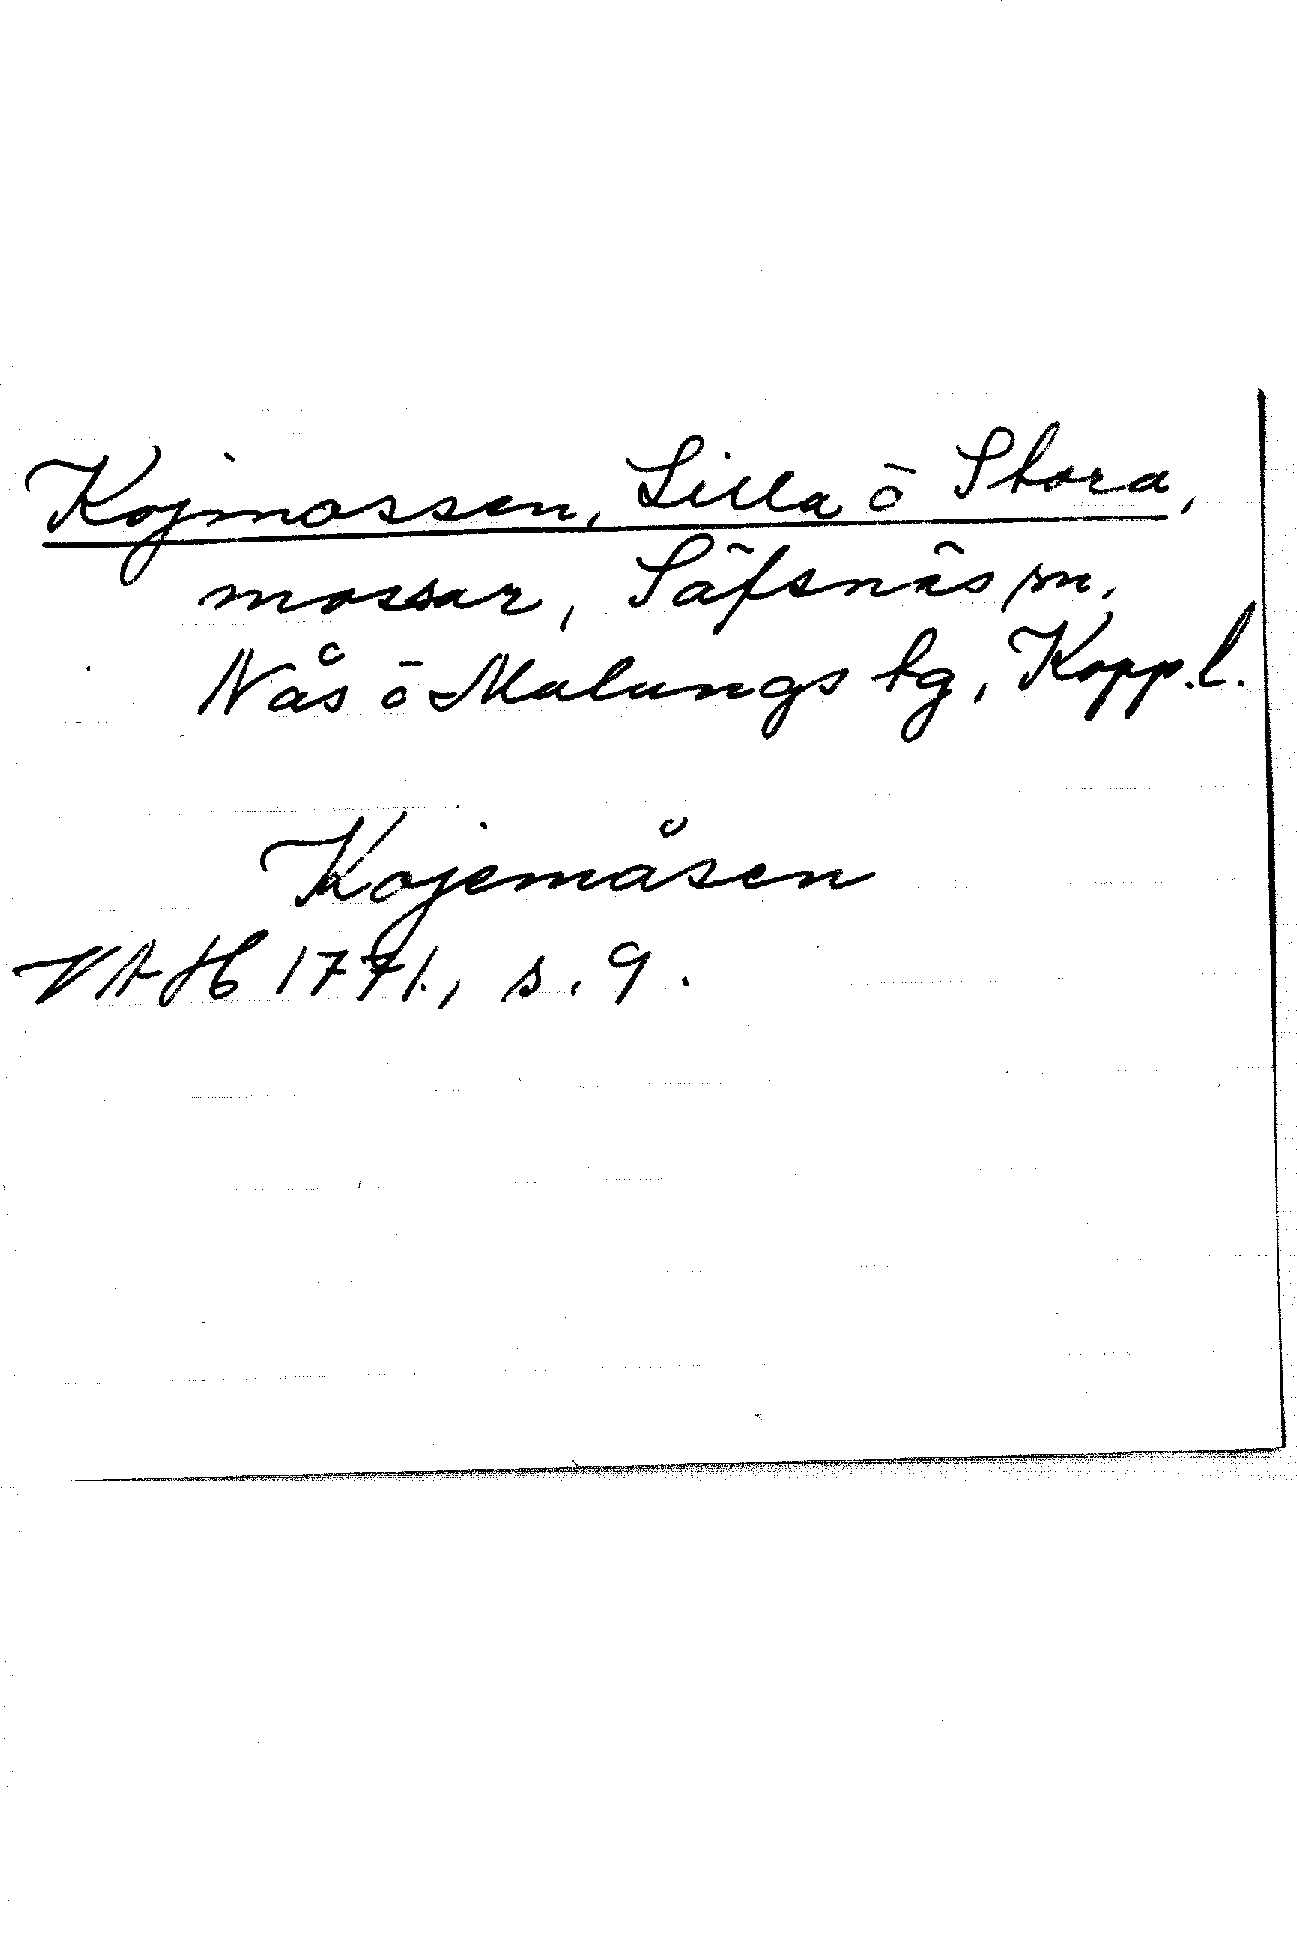 Kojmossen, Lilla o Stora,
mossar, Säfsnäs sn.
Nås o Malungs tg, Kopp.l.
Kojemåsen
VAH 1771, s. 9.